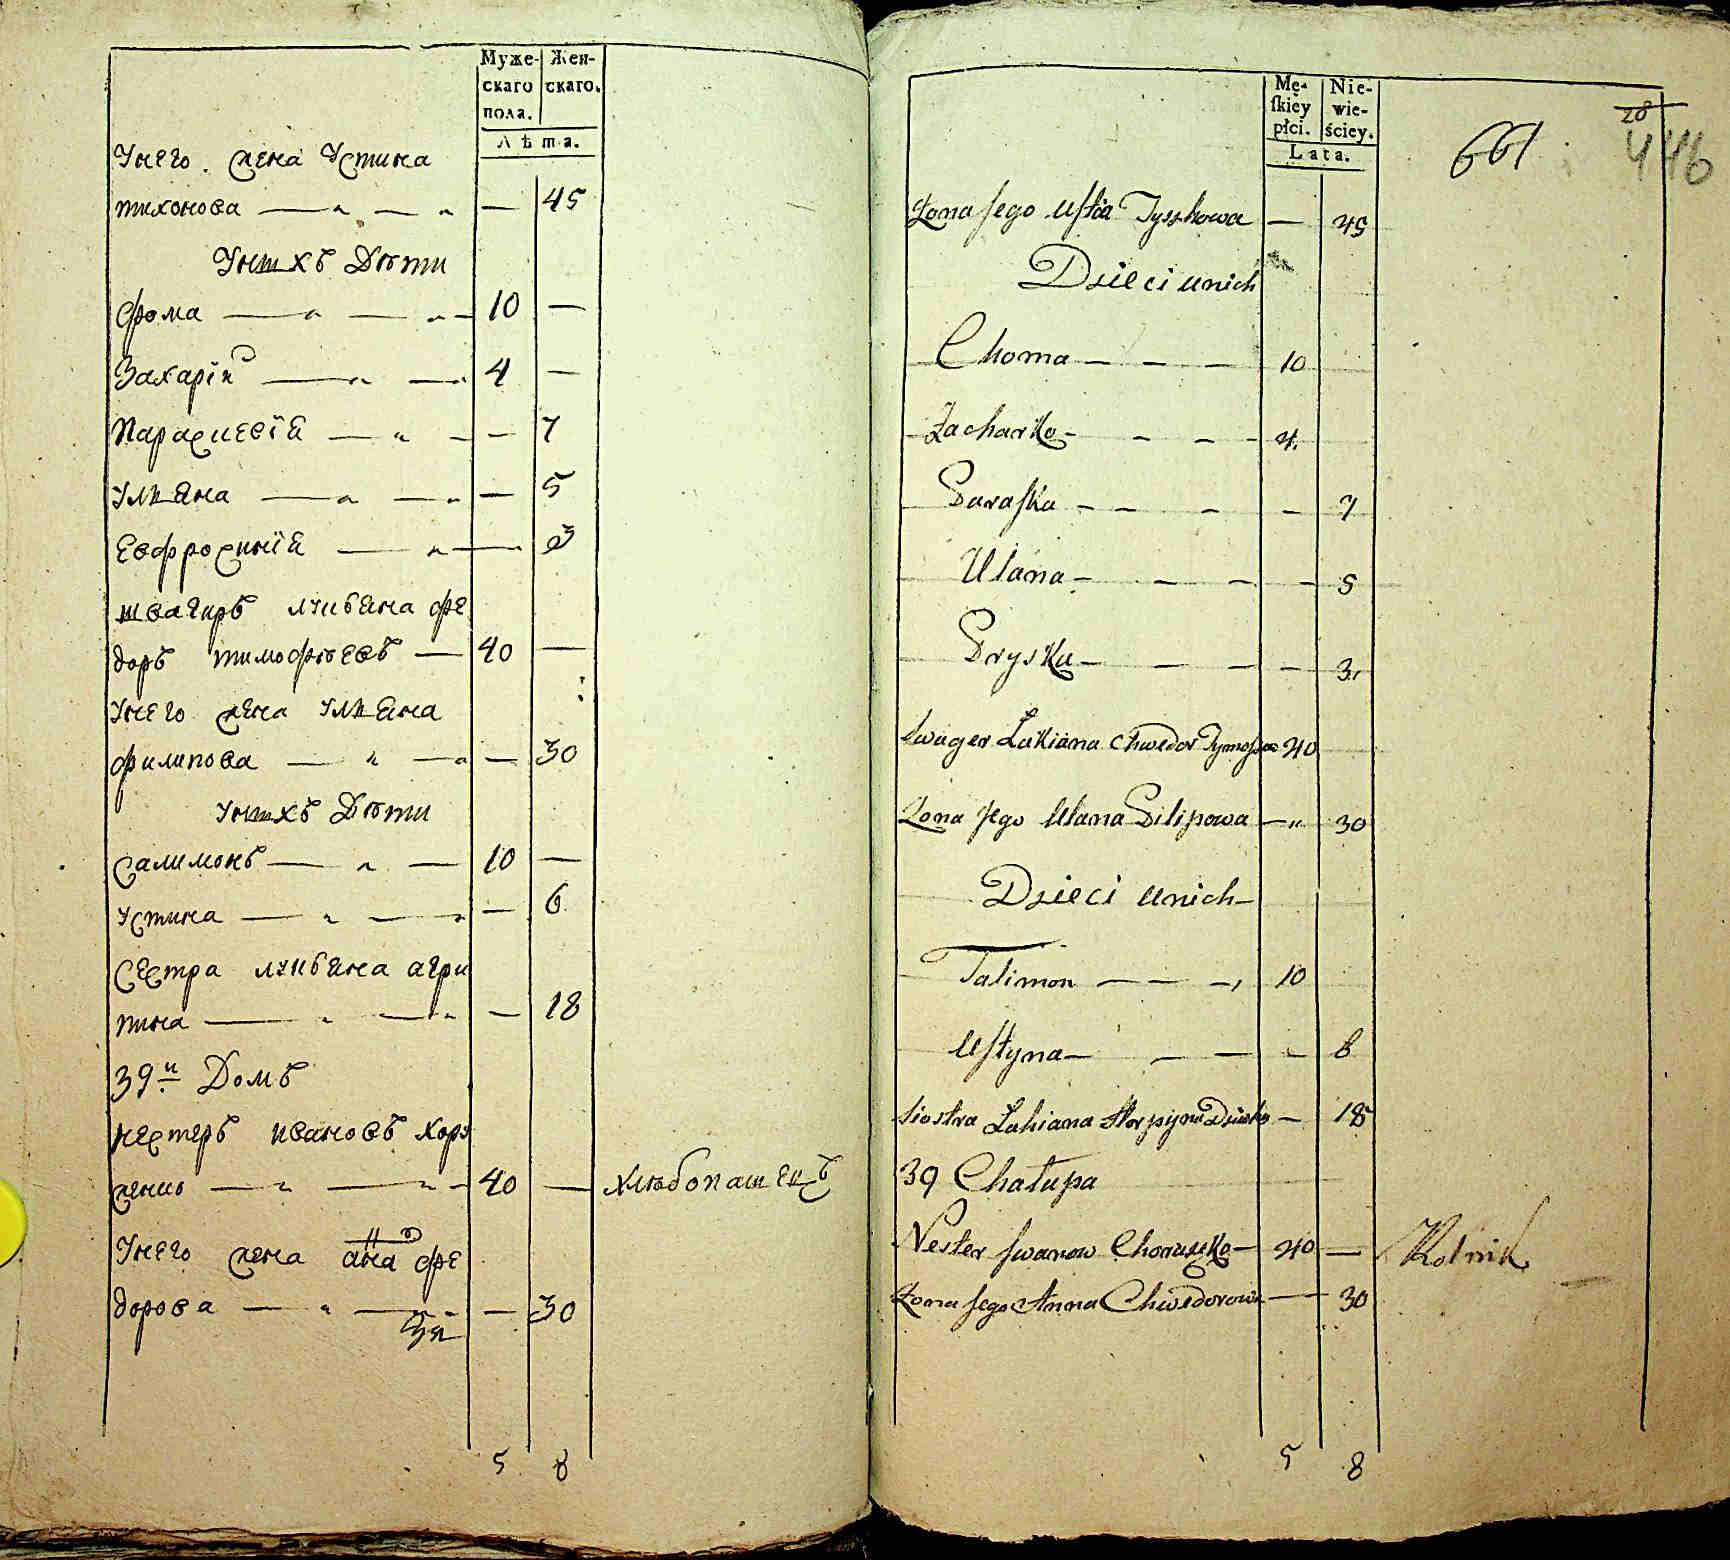 Муже- Жен-
скаго скаго.
пола.
Лѣта.
унего жена устина
тихонова — „ — „ — 45
унихъ Дѣти
фома — „ — „ — 10 —
Захарій — „ — „ 4 —
Параскевія — „ — — 7
улияна — „ — „ — 5
Евфросинія — „ — 3
швагиръ лукьяна фе
доръ тимофѣевъ — 40 —
унего жена улияна
филипова — „ — „ — 30
унихъ Дѣти
салимонъ — „ — 10 —
устина — „ — „ — 6
Сестра лукьяна агри
пина — „ — „ — 18
39й Домъ
нестеръ ивановъ хору
женко — „ — „ — 40 — хлѣбопашецъ
унего жена анна фе
дорова — „ — „ — 30
5 8
Mę- Nie-
skiey wie-
płci. ściey.
Lata.
28
661 446
Żona Jego Tyszkowa — 45
Dzieci unich
Choma — — — 10
Zacharko — — — 4.
Paraska — — — — 7
Ulana — — — — 5
Pryska — — — — 3.
Swager Łukiana Chwedor 40
Żona Jego Ulana Pilipowa — „ 30
Dzieci unich —
Talimon — — — 10
Ustyna — — — — 6
Siostra Łukiana — 18
39 Chałupa
Nester Iwanow Choruzko — 40 — Rolnik
Żona Jego Anna Chwedorowa — 30
5 8